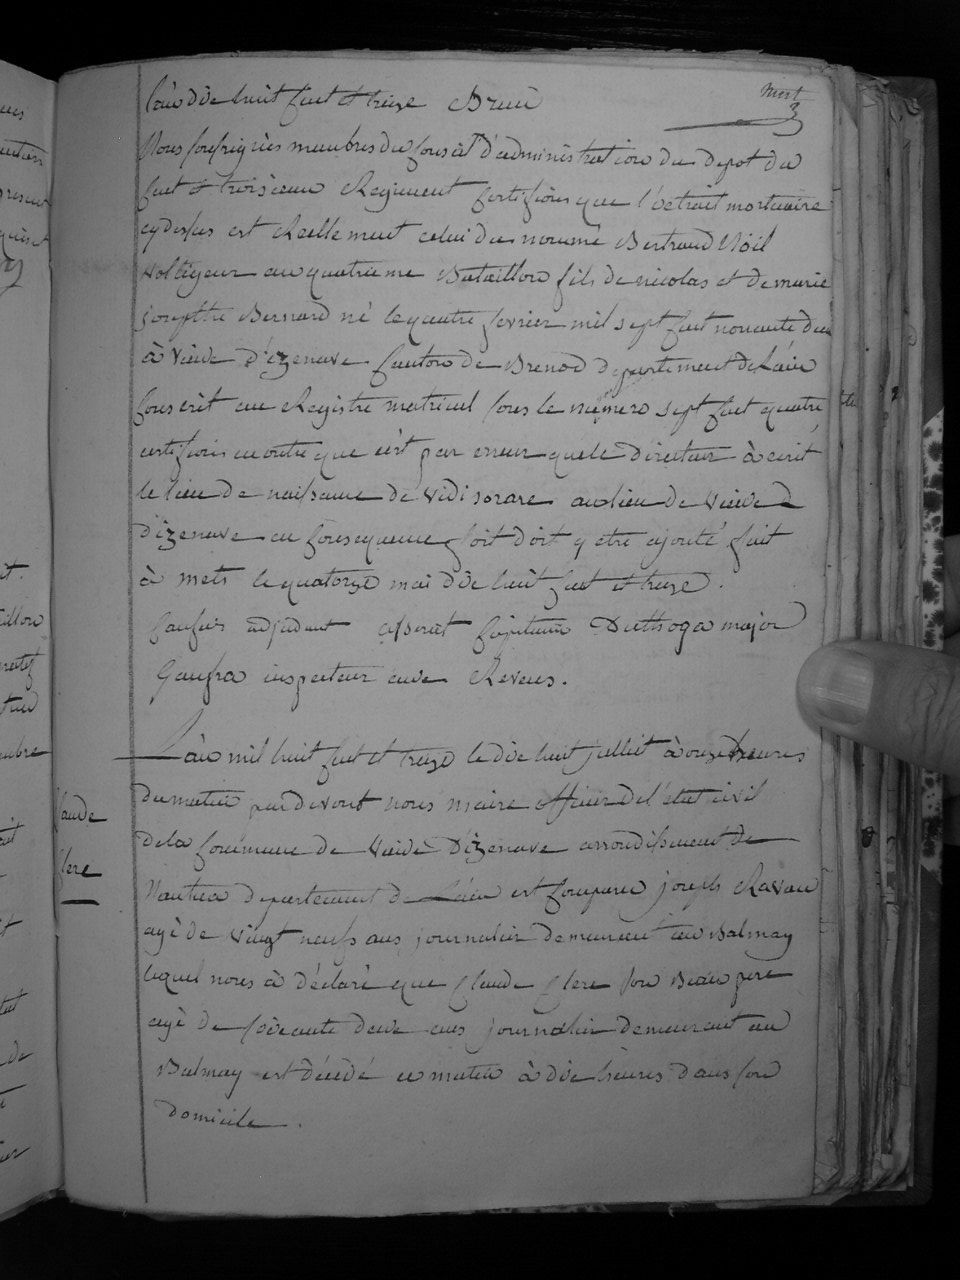 huit
3
l'an dix huit cent et treize Bruii
Nous soussignés membres du conseil d'administration du depot du
cent et troisieme Regiment certifions que l'extrait mortuaire
cy dessus est Reellement celui du nommé Bertrand Noël
voltigeur au quatrieme Bataillon fils de nicolas et de marie
josepthe Bernard né le quatre fevrier mil sept cent nonante deux
à vieux d'izenave canton de Brenod departement de l'ain
conscrit au Registre matricul sous le numero sept cent quatre
certifions en outre que c'est par erreur que le directeur à écrit
le lieu de naissance de vidisorare au lieu de vieux d
d'izenave en consequence foit doit y etre ajouté fait
à mets le quatorze mai dix huit cent et treize.
adjudant capitaine major
inspecteur aux Revues.
L'an mil huit cent et treize le dix huit julliet à onze heures
du matin par devant nous maire officier de l'etat civil
de la commune de vieux d'izenave arrondissement de
Nantua departement de L'ain est comparu joseph Ravau
agé de vingt neufs ans journalier demeurant au Balmay
lequel nous à déclaré que Claude Clere son Beau pere
agé de soixante deux ans journalier demeurant au
Balmay est décédé ce matin à dix heures dans son
domicile.
Claude
Clere